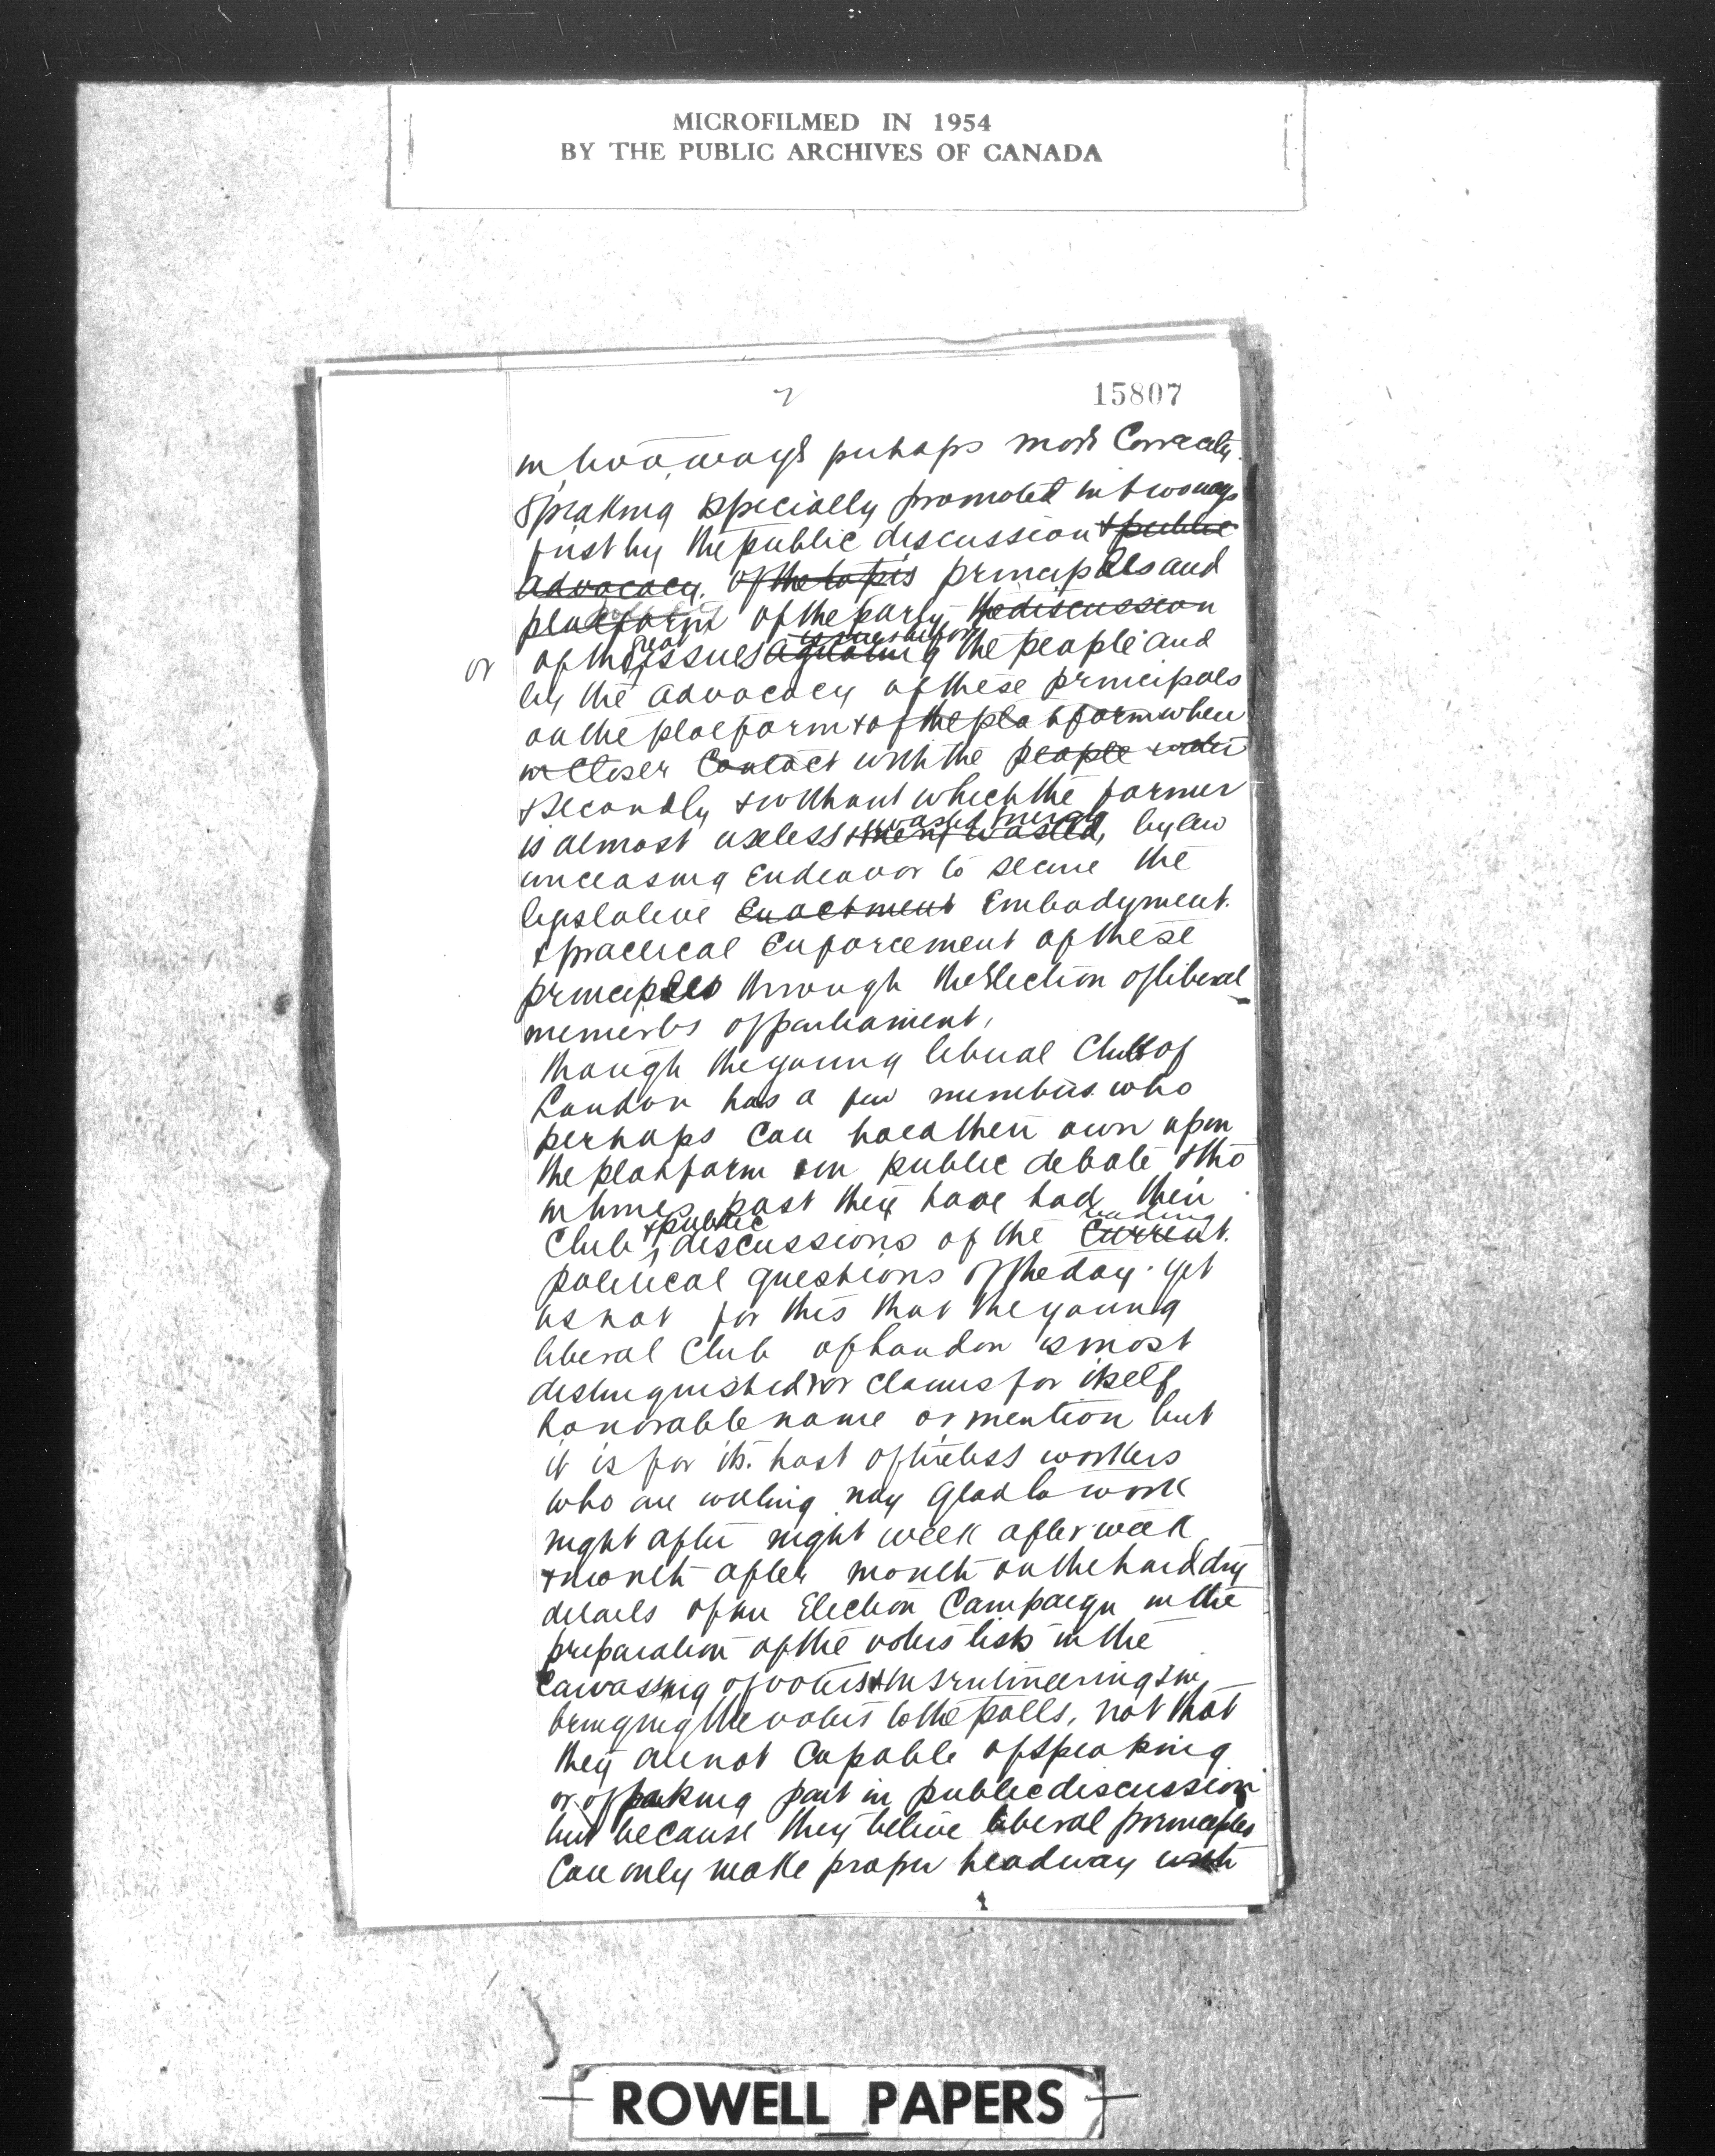 MICROFILMED IN 1954
BY THE PUBLIC ARCHIVES OF CANADA
2
15807
in two ways perhaps more Correctly
speaking specially promoted in two ways
first by the public discussion & public
advocacy. of the principles and
platform of the party the discussion
great issues before
or of the issues agitating the people and
by the advocacy of these principals
on the platform & of the platform when
in closer Contact with the people
& secondly & without which the former
wasted energy
is almost useless & wasted, by an
unceasing Endeavor to secure the
legislative Enactment Embodyment
& practical Enforcement of these
principles through the Election of liberal
members of parliament,
though the young liberal Club of
London has a few members who
perhaps can hold their own upon
the platform in public debate & tho
in times past they have had their
& public leading
Club discussions of the Current
political questions of the day. yet
its not for this that the young
liberal Club of London is most
distinguished or claims for itself
honorable name or mention but
it is for its. host of tireless workers
who are willing nay glad to work
night after night week after week
& month after month on the hard dry
details of an Election Campaign in the
preparation of the voters lists in the
Canvassing of voters & in srutineering & in
bringing the voters to the polls, not that
they are not Capable of speaking
or of taking part in public discussion
but because they believe liberal principles
Can only make proper headway with
ROWELL PAPERS